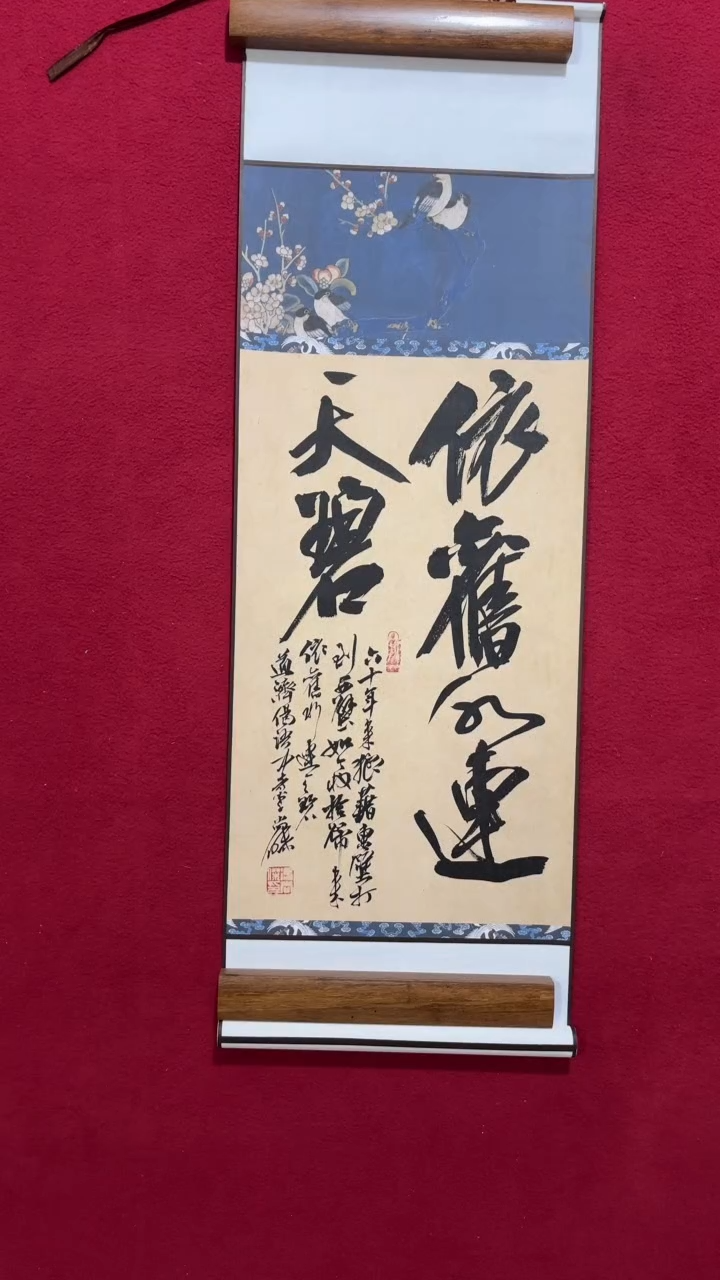 依舊水連
天碧
六十年來狼藉東壁打
到西壁如今收拾歸來
依舊水連天碧
道濟偈語